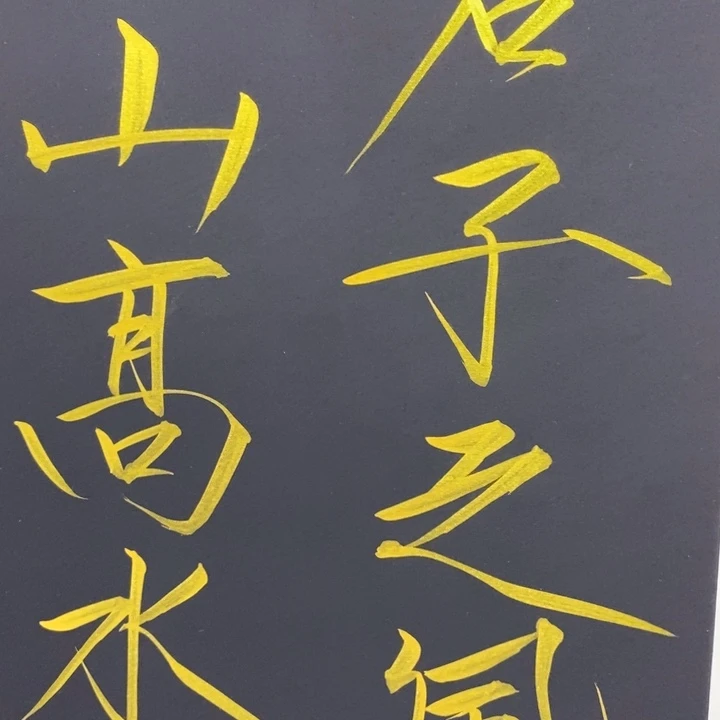 君子之風
山高水